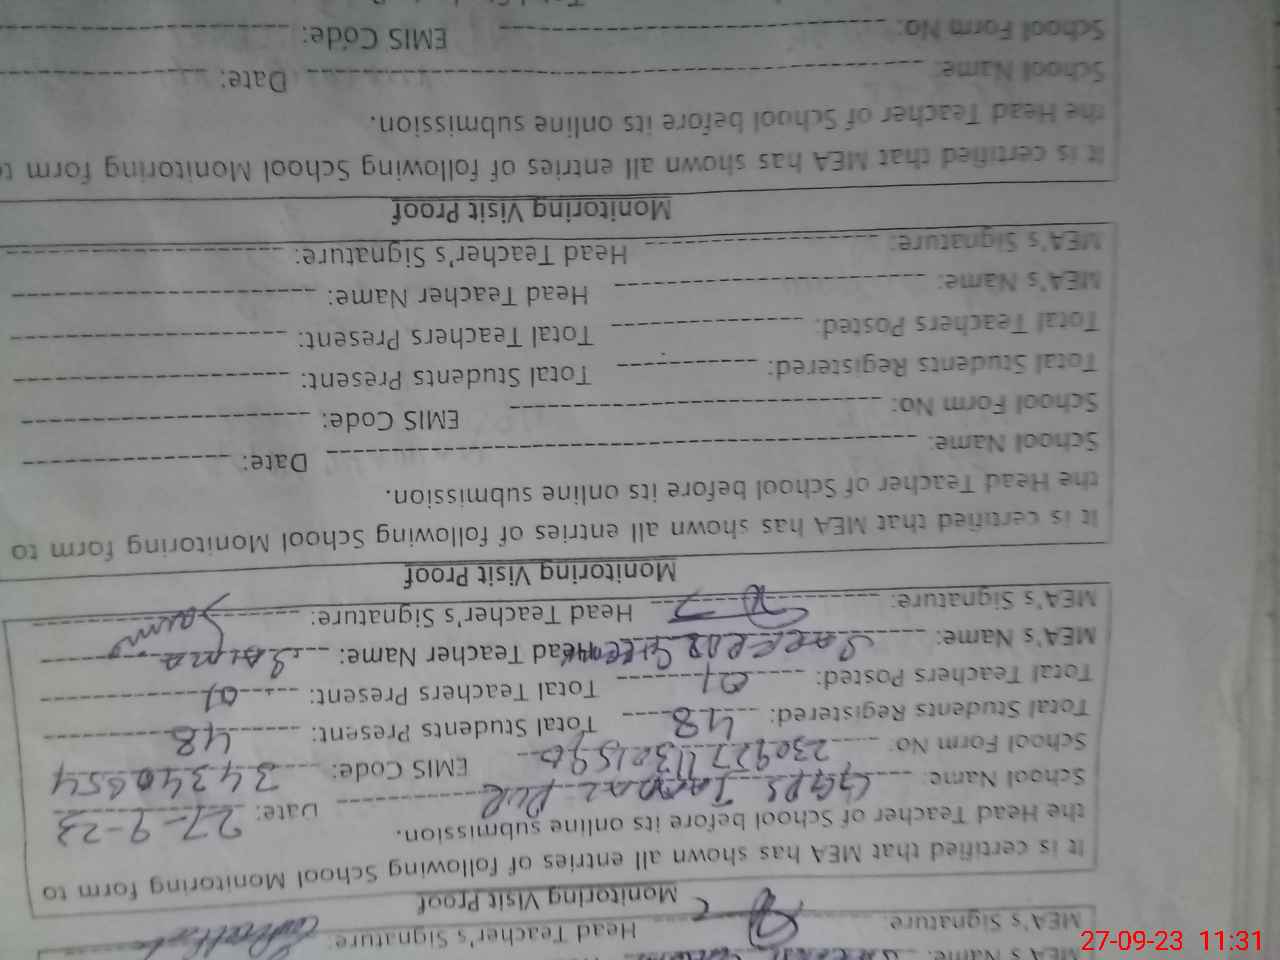 MEA's Name:
MEA's Signature: Head Teacher's Signature:
Monitoring Visit Proof
It is certified that MEA has shown all entries of following School Monitoring form to
the Head Teacher of School before its online submission.
School Name: GGPS Pur Date: 27-9-23
School Form No: EMIS Code: 34340654
Total Students Registered: 48 Total Students Present: 48
Total Teachers Posted: 01 Total Teachers Present: 01
MEA's Name: Head Teacher Name: Saima
MEA's Signature: Head Teacher's Signature:
Monitoring Visit Proof
It is certified that MEA has shown all entries of following School Monitoring form to
the Head Teacher of School before its online submission.
School Name: Date:
School Form No: EMIS Code:
Total Students Registered: Total Students Present:
Total Teachers Posted: Total Teachers Present:
MEA's Name: Head Teacher Name:
MEA's Signature: Head Teacher's Signature:
Monitoring Visit Proof
It is certified that MEA has shown all entries of following School Monitoring form to
the Head Teacher of School before its online submission.
School Name: Date:
School Form No: EMIS Code:
27-09-23 11:31